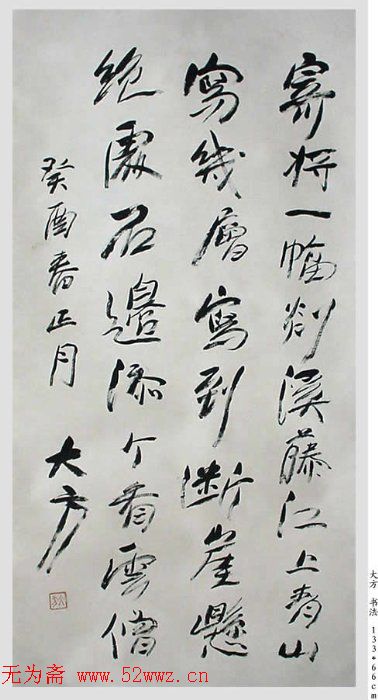 寄将一幅剡溪藤江上青山
寫幾層寫到断崖懸
絕處石邊添个看雲僧
癸酉春正月
大方
大方 书法 133*66cm
无为斋 www.52wwz.cn